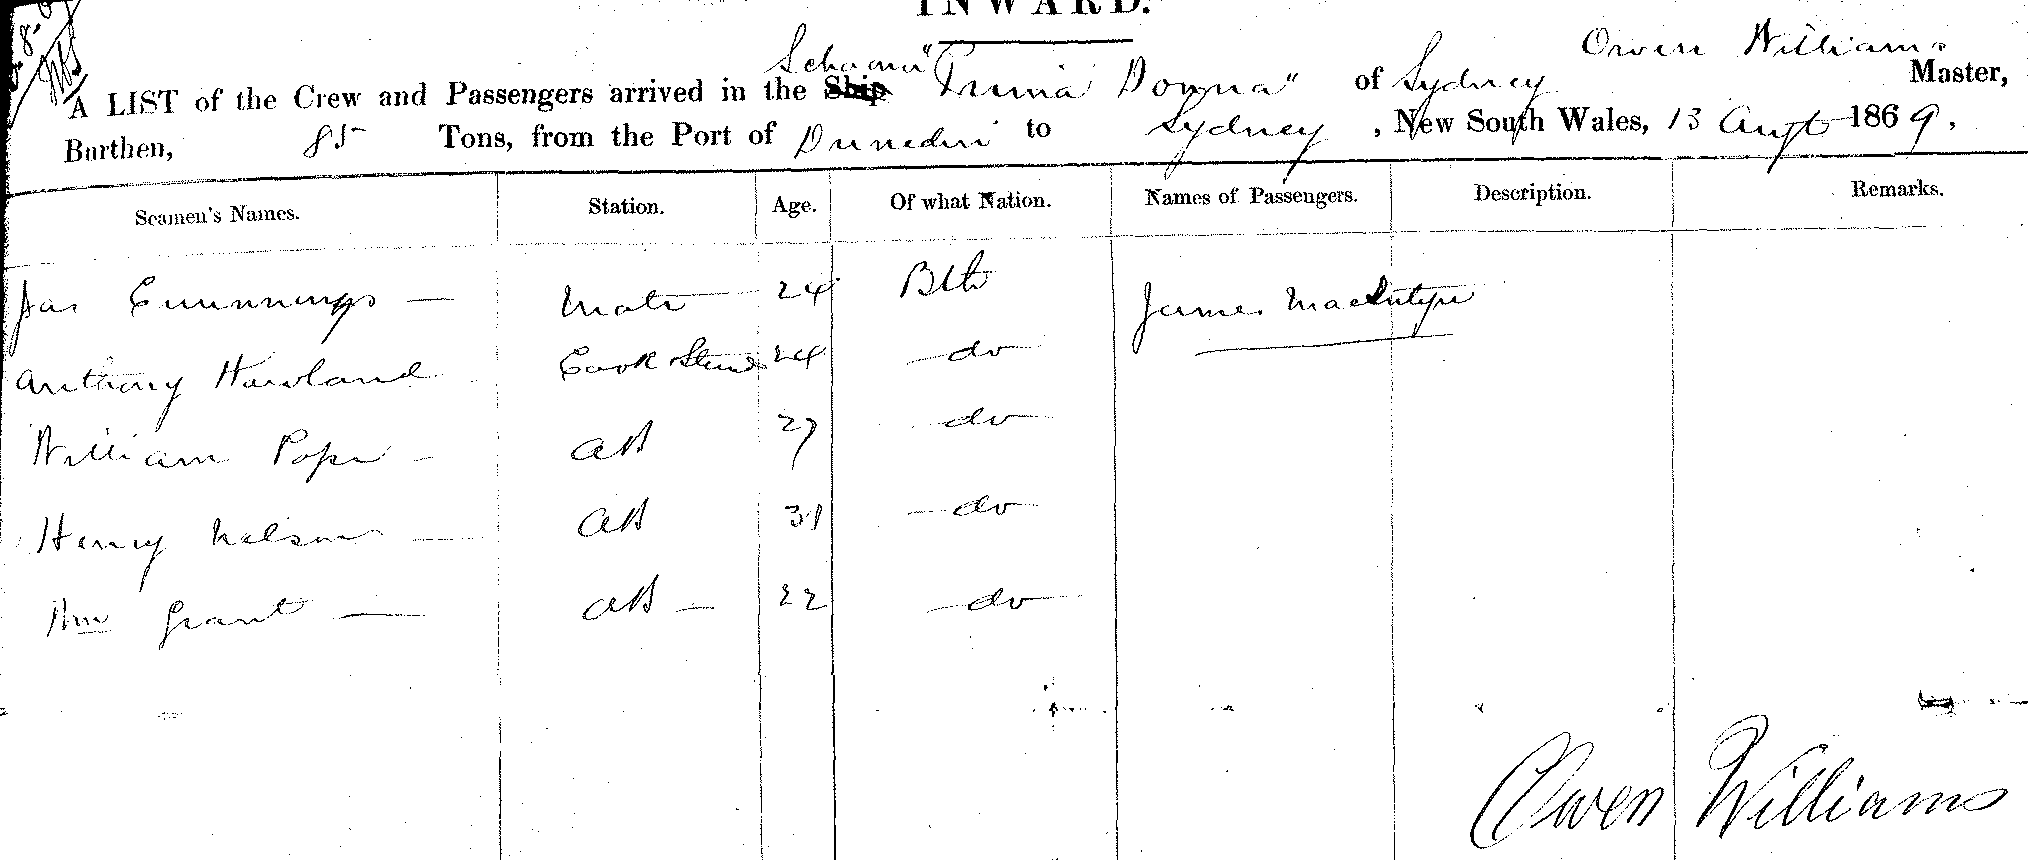 INWARD.
Schooner
Owen Williams
A LIST of the Crew and Passengers arrived in the Ship "Prima Donna" of Sydney Master,
Burthen, 85 Tons, from the Port of Dunedin to Sydney, New South Wales, 13 Augt 1869.
Seamen's Names. Station. Age. Of what Nation. Names of Passengers. Description. Remarks.
Jas Cummings — Mate 24 Bth James MacIntyre
Anthony Howland Cook Stewd 24 do
William Pope AB 27 do
Henry Nelson AB 31 do
Wm Grant AB 22 do
Owen Williams